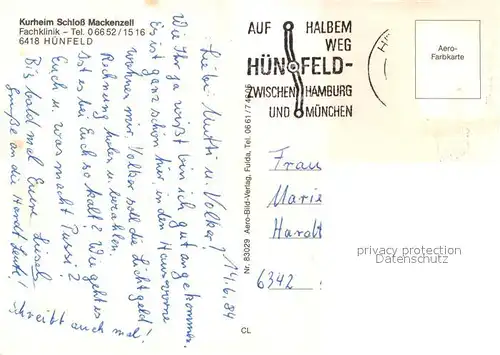 Kurheim Schloß Mackenzell
Fachklinik – Tel. 0 66 52 / 15 16
6418 HÜNFELD
Liebe Mutti u. Volker!
14.6.84
Wie Ihr ja wißt bin ich gut angekommen.
Es ist ganz schön hier, in den Haus vorne
wohnen wir. Volker soll die Lichtgeld
Rechnung holen u. bezahlen.
Ist es bei Euch so kalt? Wie geht es
Euch u. was macht Pussi?
Bis bald mal Eure Liesel
Grüße an die Hardt Leut!
Schreibt auch mal!
Nr. 83029 Aero-Bild-Verlag, Fulda, Tel. 06 61 /
CL
AUF HALBEM
WEG
HÜNFELD-
ZWISCHEN HAMBURG
UND MÜNCHEN
H
Aero-
Farbkarte
Frau
Marie
Hardt
6342
privacy protection
Datenschutz